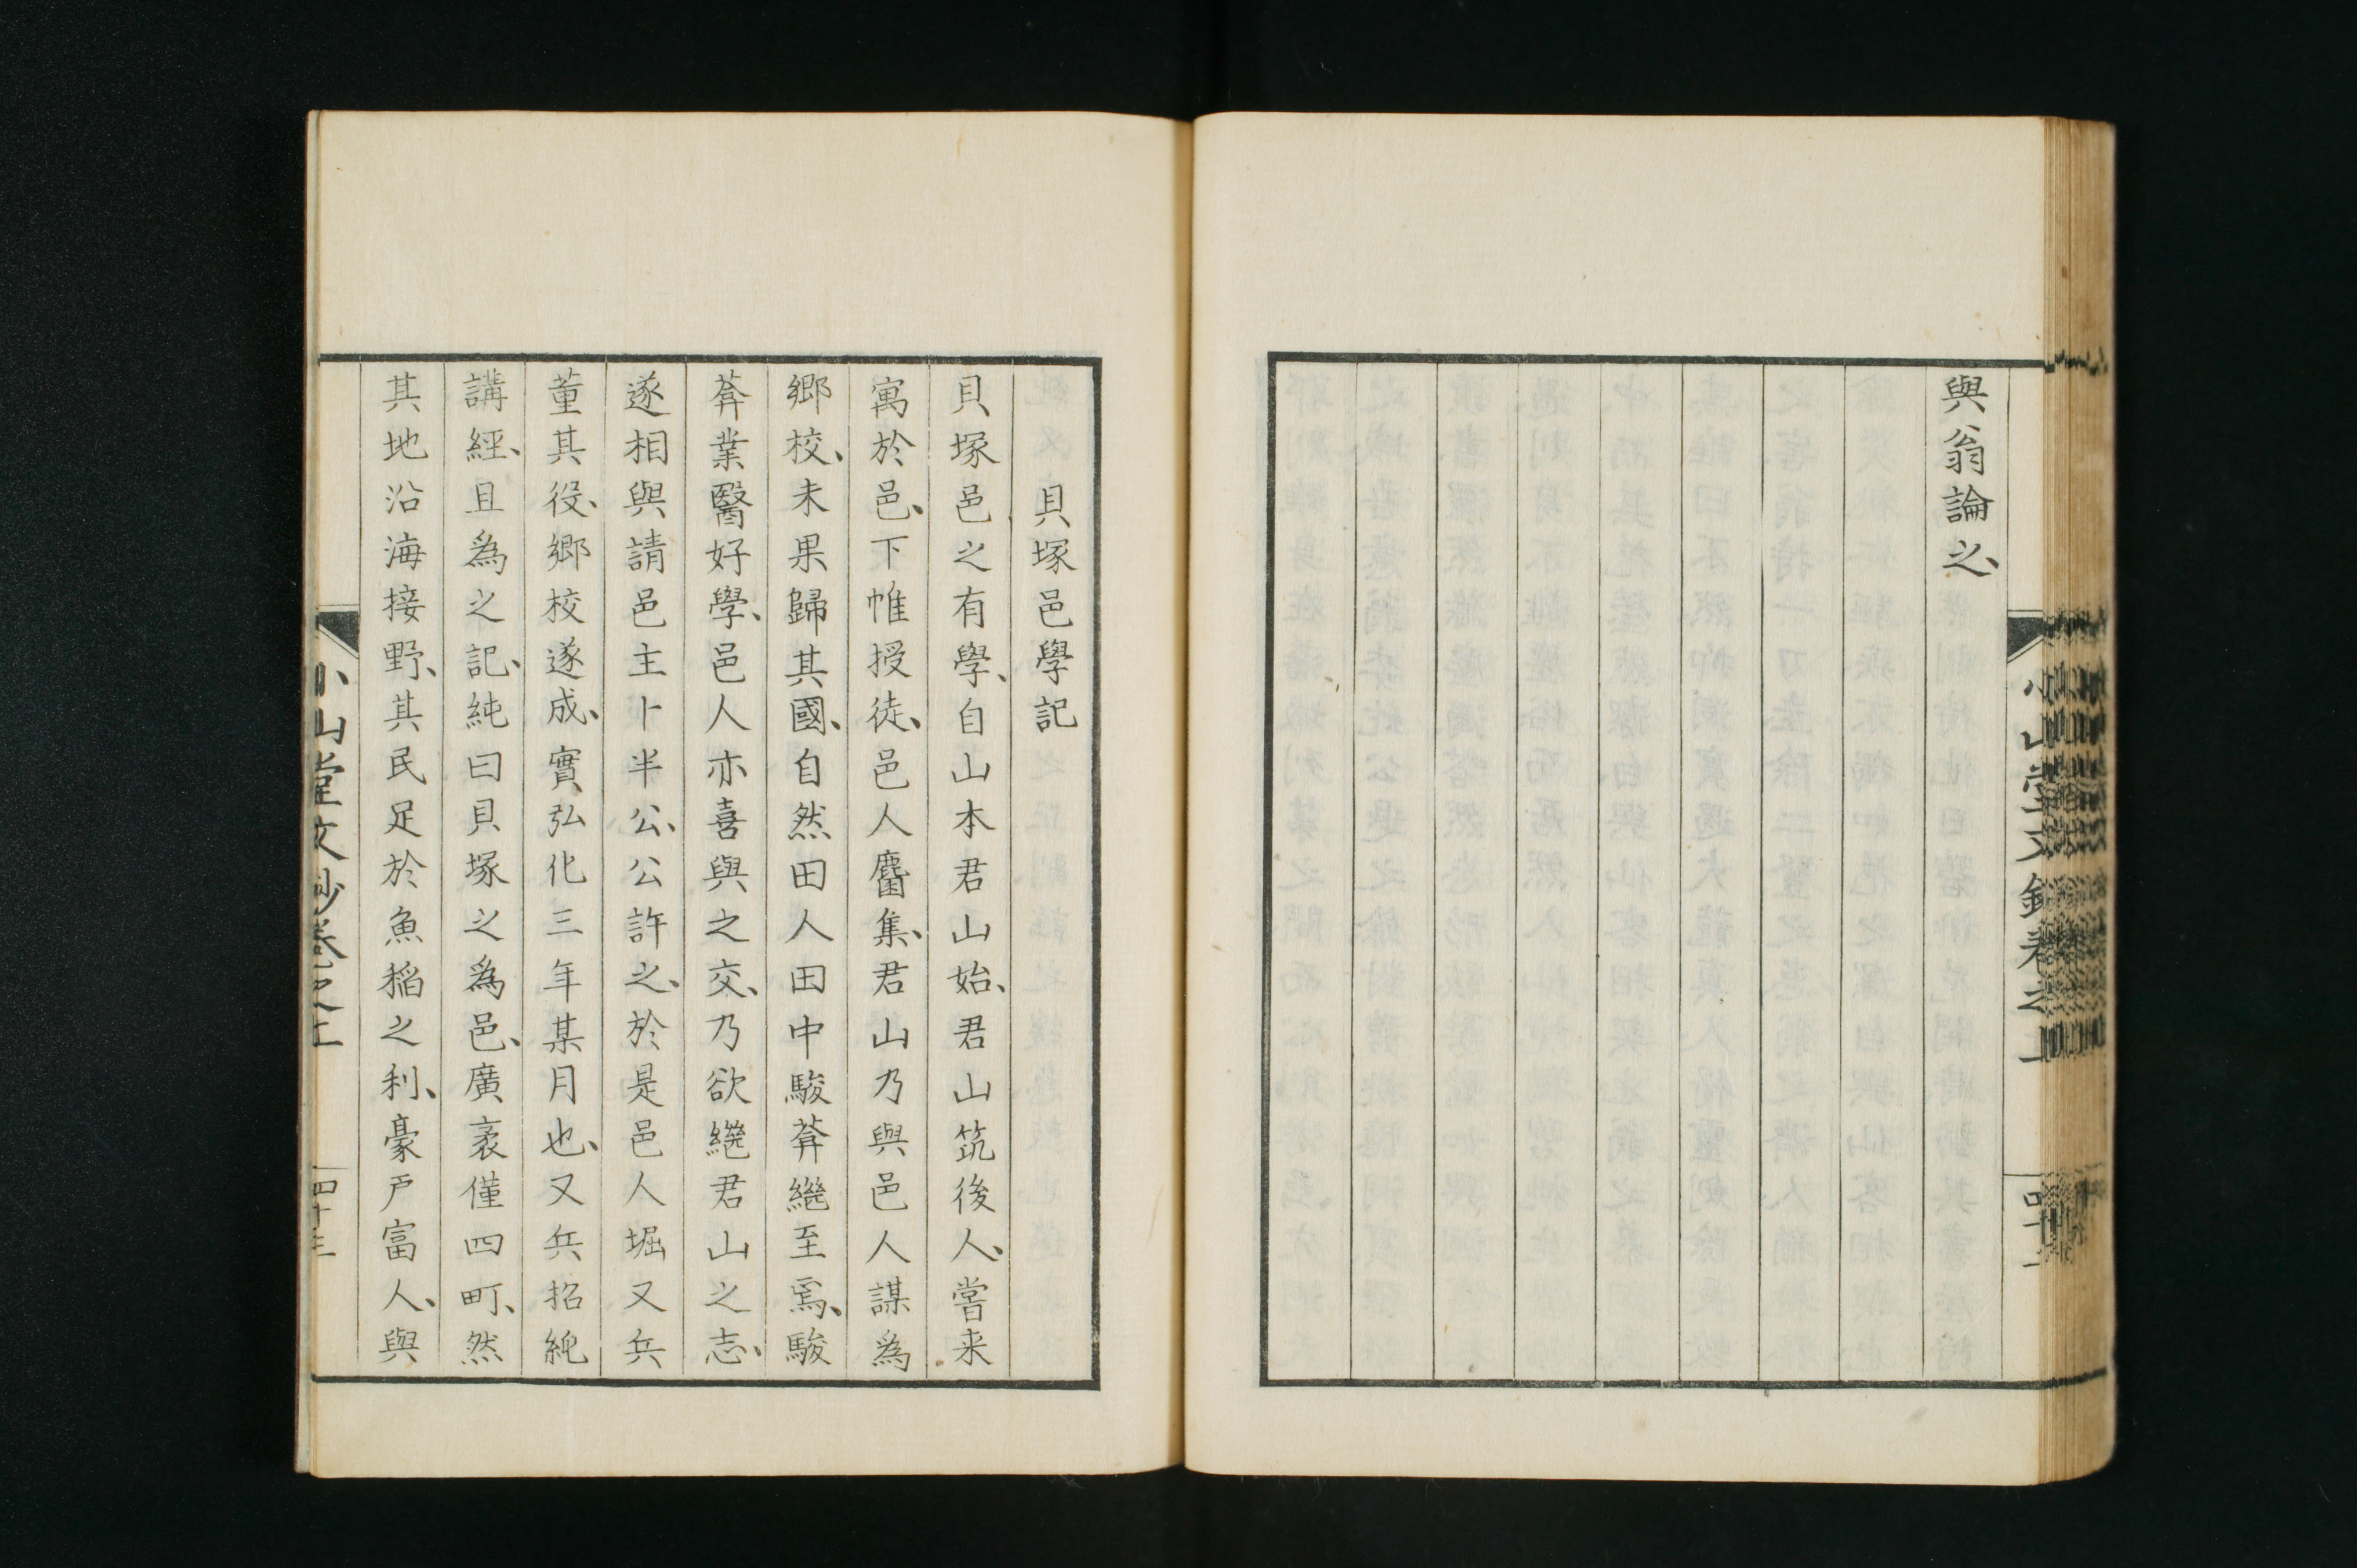 與翁論之、
小山堂文鈔卷之上
貝塚邑學記
貝塚邑之有學、自山本君山始、君山筑後人、嘗来
寓於邑、下帷授徒、邑人麕集、君山乃與邑人謀為
鄉校、未果歸其國、自然田人田中駿葊繼至焉、駿
葊業醫好學、邑人亦喜與之交、乃欲繼君山之志、
遂相與請邑主卜半公、公許之、於是邑人堀又兵
董其役、鄉校遂成、實弘化三年某月也、又兵招純
講經、且為之記、純曰貝塚之為邑、廣袤僅四町、然
其地沿海接野、其民足於魚稻之利、豪戸富人、與
小山堂文鈔卷之上
四十三